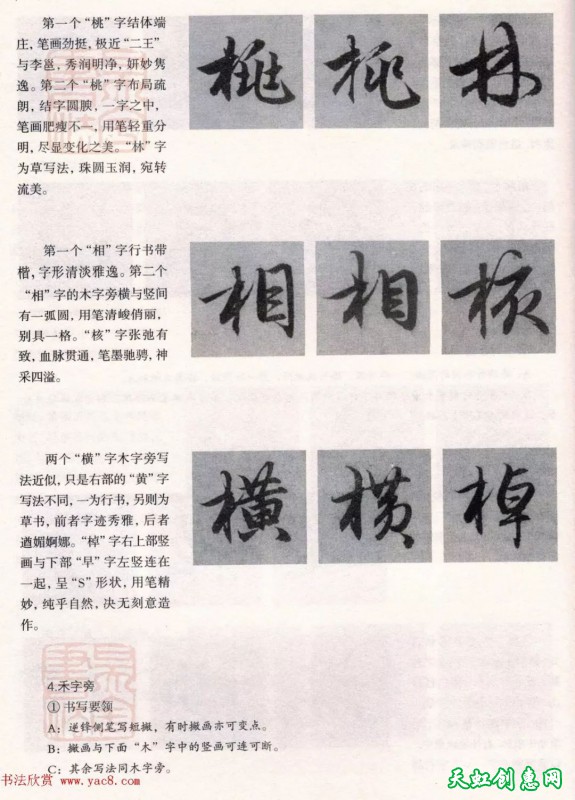 第一个“桃”字结体端
庄，笔画劲挺，极近“二王”
与李邕，秀润明净，妍妙隽
逸。第二个“桃”字布局疏
朗，结字圆腴，一字之中，
笔画肥瘦不一，用笔轻重分
明，尽显变化之美。“林”字
为草写法，珠圆玉润，宛转
流美。
桃 桃 林
第一个“相”字行书带
楷，字形清淡雅逸。第二个
“相”字的木字旁横与竖间
有一弧圆，用笔清峻俏丽，
别具一格。“核”字张弛有
致，血脉贯通，笔墨驰骋，神
采四溢。
相 相 核
两个“横”字木字旁写
法近似，只是右部的“黄”字
写法不同，一为行书，另则为
草书，前者字迹秀雅，后者
遒媚婀娜。“棹”字右上部竖
画与下部“早”字左竖连在
一起，呈“S”形状，用笔精
妙，纯乎自然，决无刻意造
作。
横 横 棹
4.禾字旁
①书写要领
A：逆锋侧笔写短撇，有时撇画亦可变点。
B：撇画与下面“木”字中的竖画可连可断。
C：其余写法同木字旁。
书法欣赏 www.yac8.com
天虹创意网